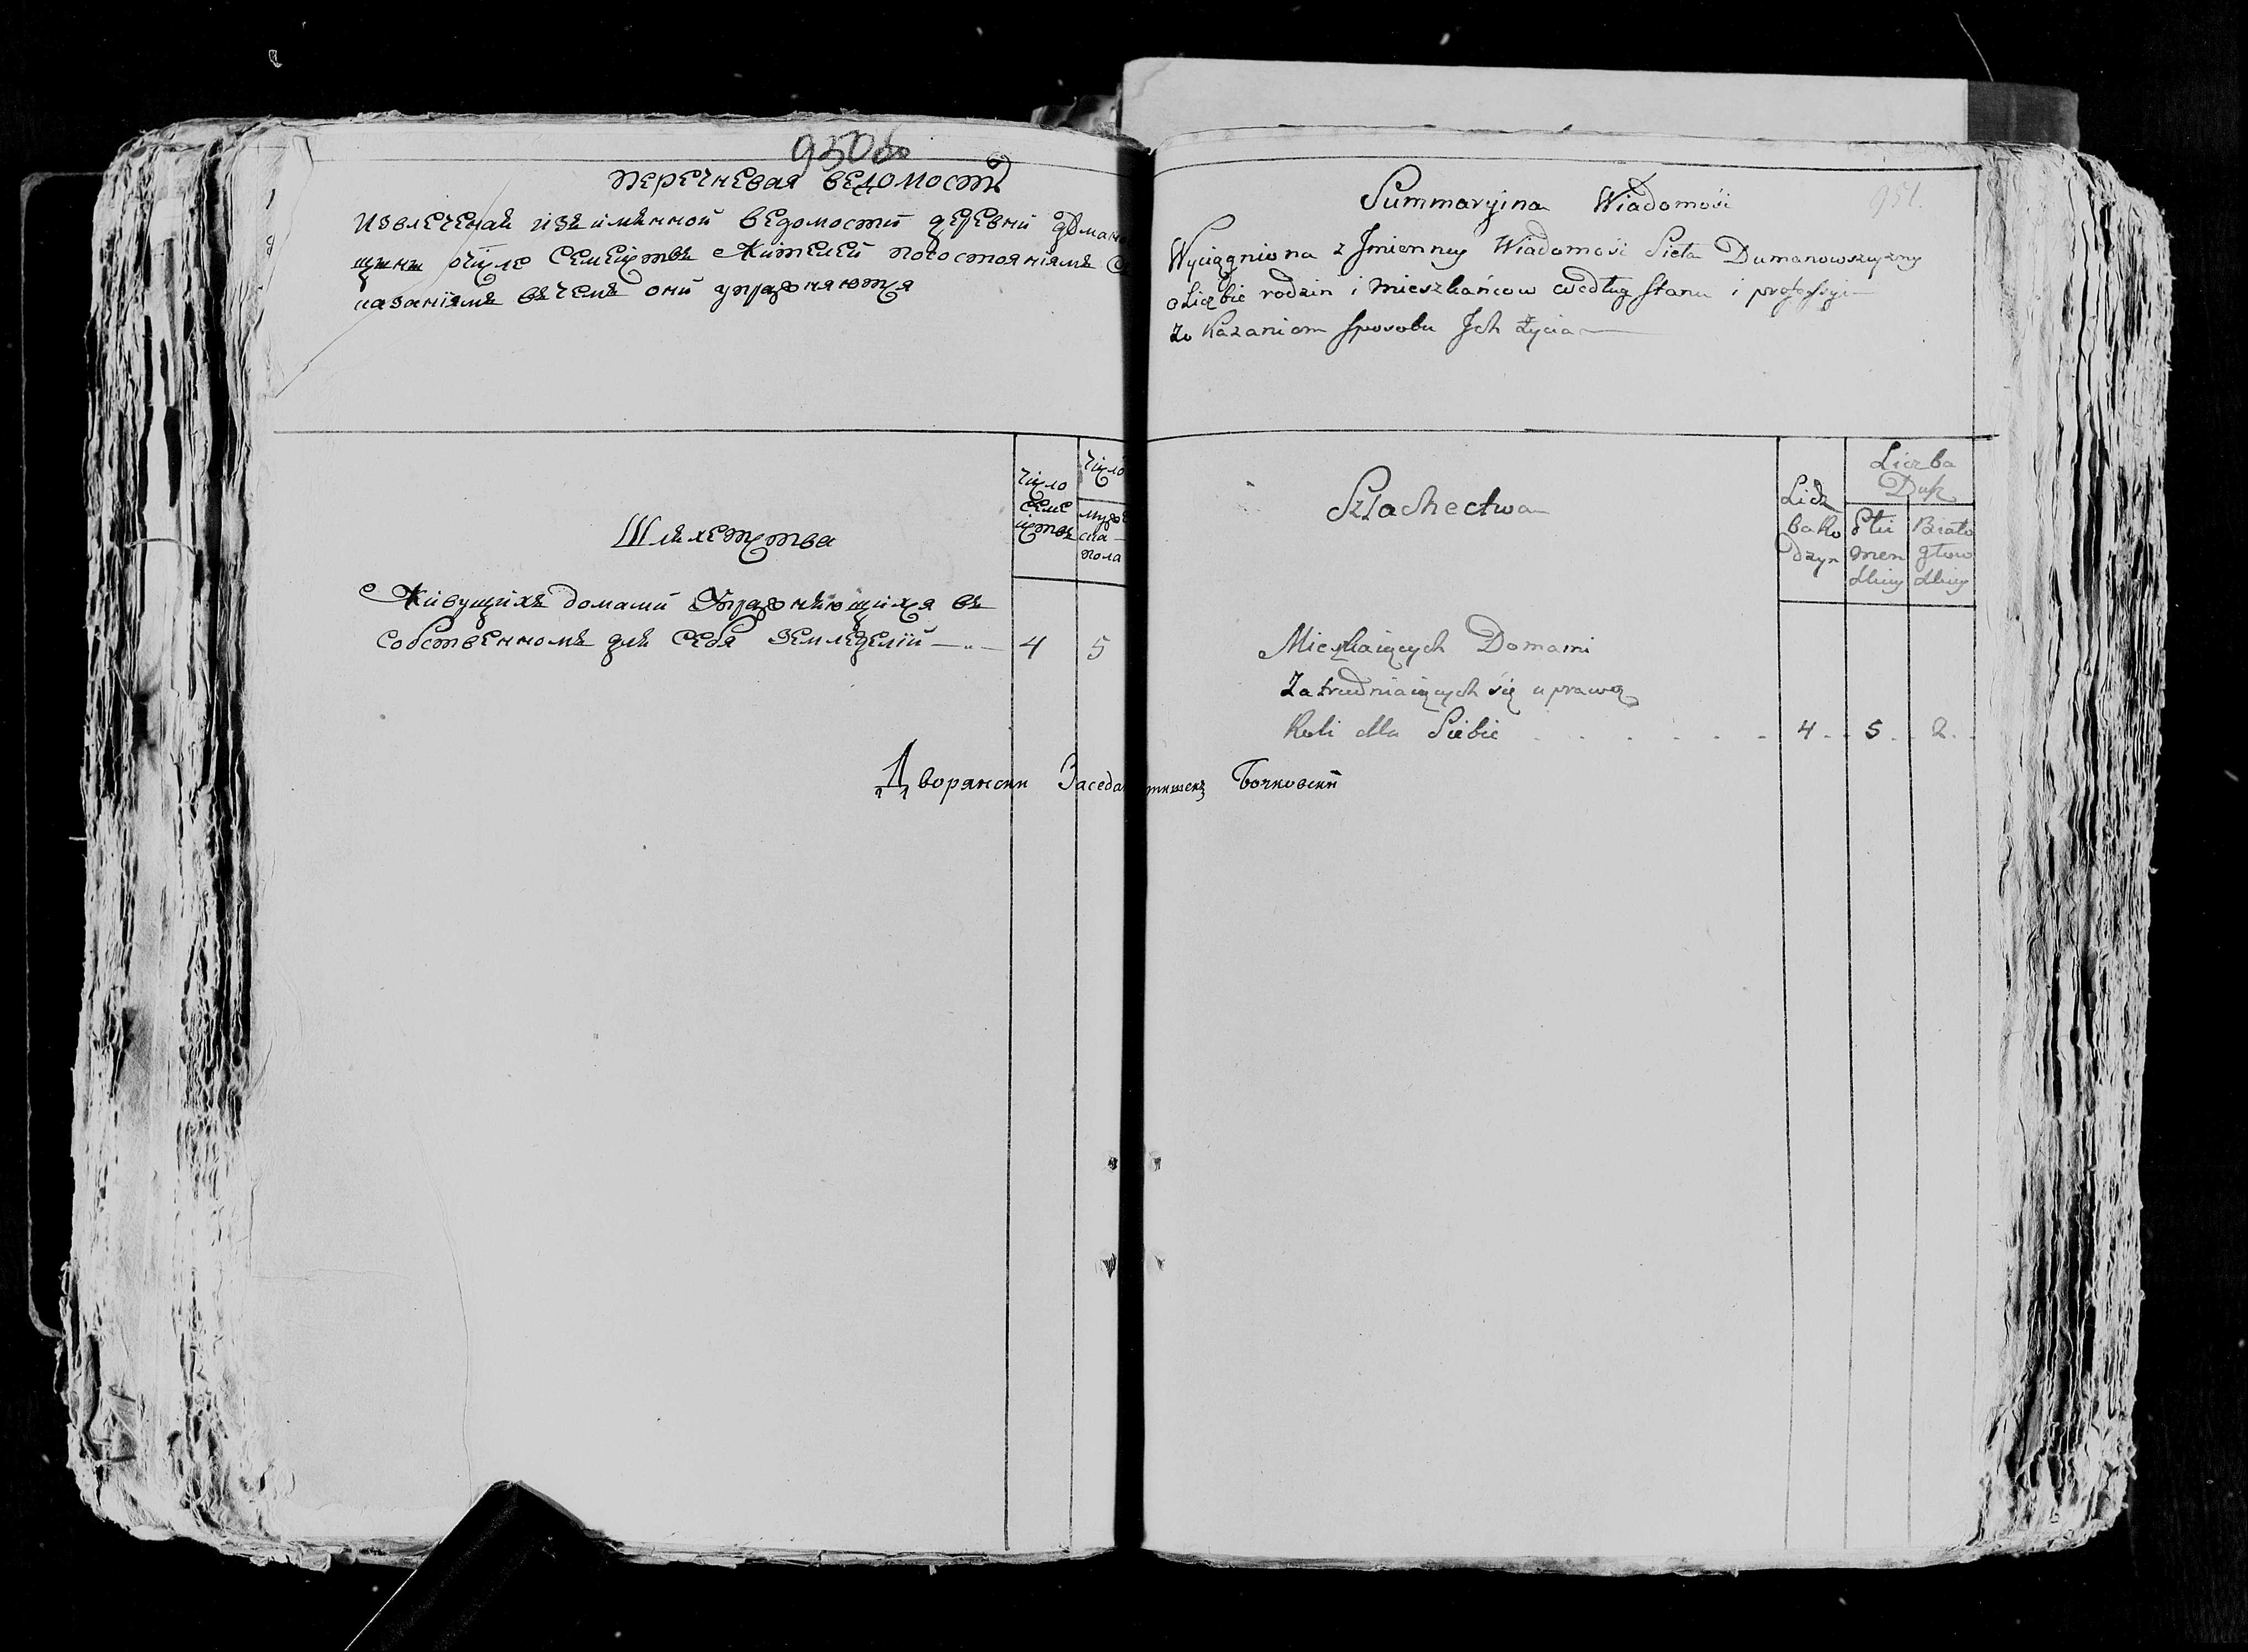 950об
перечневая ведомость
извлеченая изъ имянной ведомости деревни
щины очисле семействъ жителей посостояниямъ
казаниямъ въчемъ они упражняются
Число
семе
йствъ
Число
муже
ска
пола
Шляхетства
Живущихъ домами Упражняющихся въ
собственномъ для себя земледелии 4 5
Дворянски Заседа
951.
Summaryina Wiadomość
Wyciągniona z Jmienney Wiadomości Sieła Dumanowszczyzny
o Liczbie rodzin i mieszkańcow według stanu i professyi
Zo Kazaniom sposobu Jch Życia
Szlachectwa
Licz
ba Ro
dzyn
Liczba
Dusz
Płci
męzn
skiey
Biało
głow
skiey
Mieszkaiących Domami
Zatrudniaiących się uprawą
Roli dla Siebie 4 5 2
Бочковский